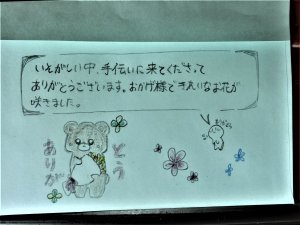 いそがしい中、手伝いに来てくださって
ありがとうございます。おかげ様できれいなお花が
咲きました。
ありがとう